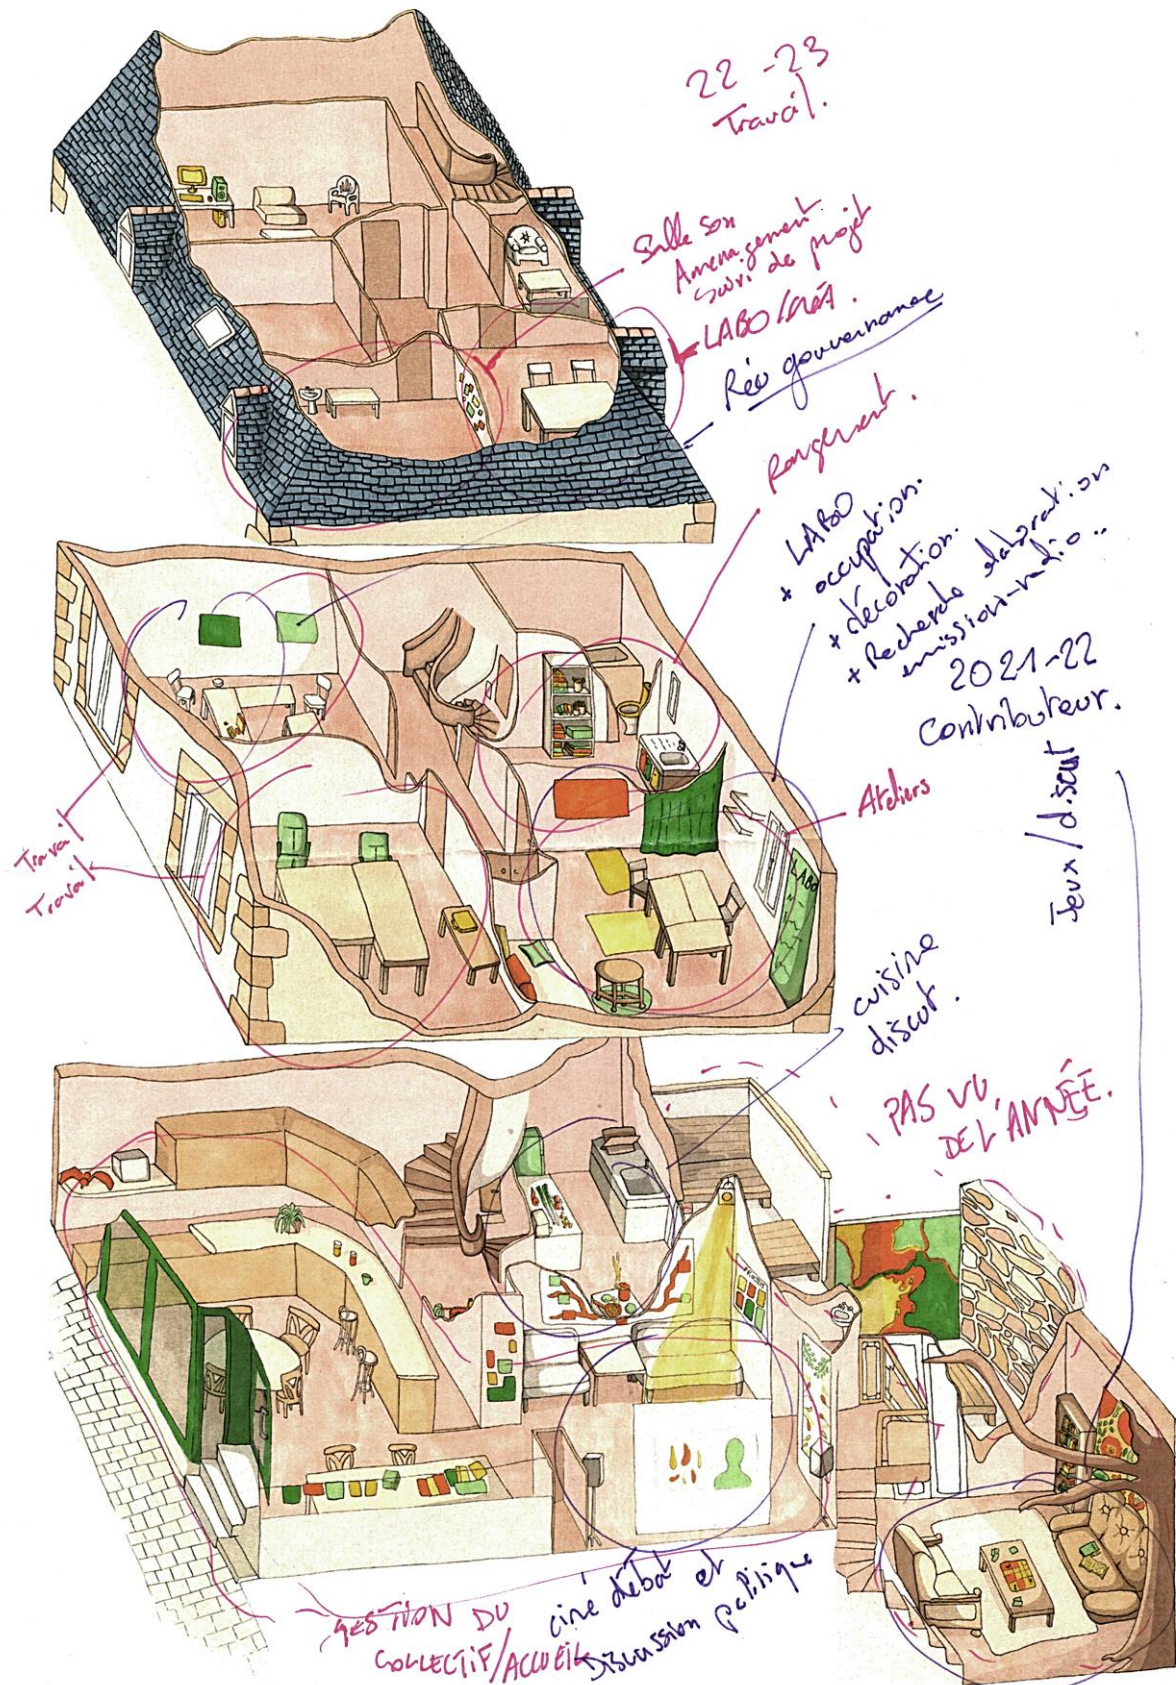 22-23
Travail.
Salle son
Aménagement
suivi de projet
LABO/CRÉA.
Réu gouvernance
Rangement.
LABO
+ occupation.
+ décoration.
+ Recherche élaboration
émission-radio..
2021-22
Contributeur.
Jeux/discut
Ateliers
LABO
Travail
Travail
cuisine
discut.
PAS VU
DE L'ANNÉE.
GESTION DU
COLLECTIF/ACCUEIL
ciné débat et
Discussion politique